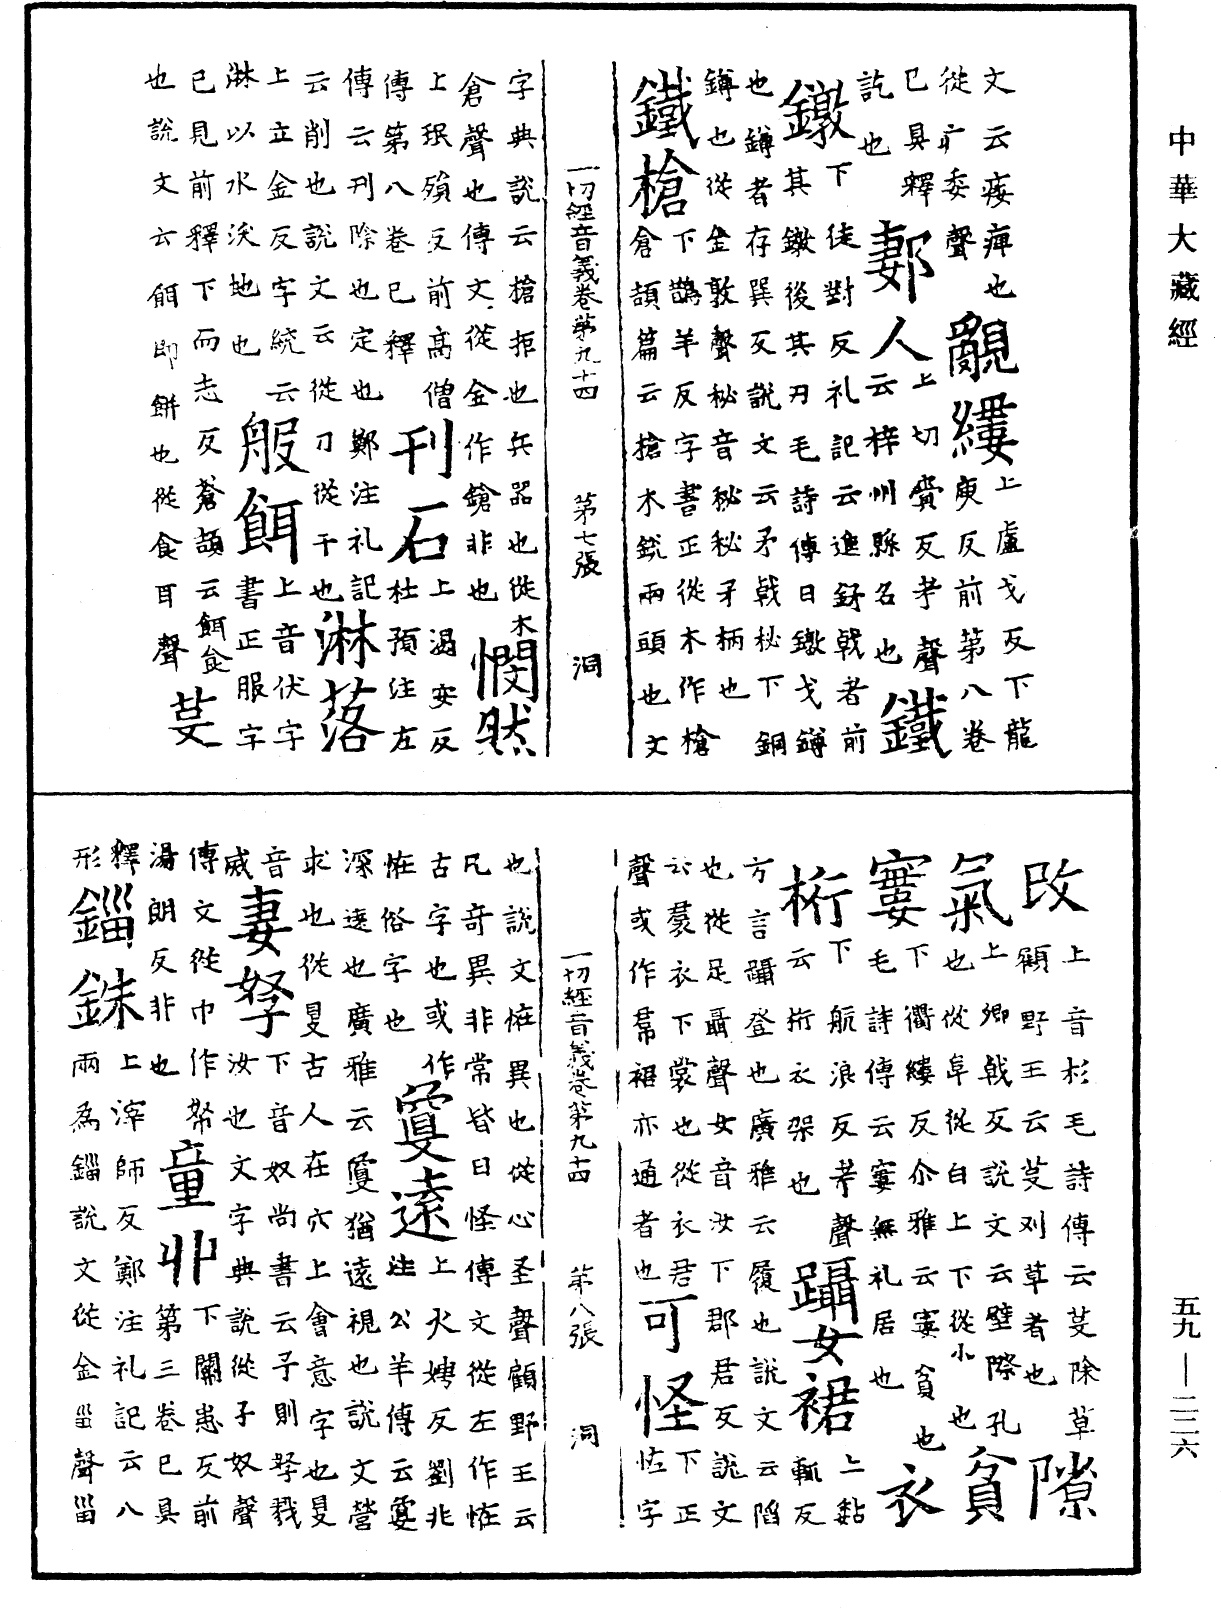 中華大藏經
文云痿痺也 覶縷 上盧戈反下龍
從疒委聲 庾反前第八卷
已具釋 郪人 上切賫反考聲 鐵
訖也 云梓州縣名也
鐓 下徒對反礼記云進鉾戟者前
其鐓後其刃毛詩傳曰鐓戈鐏
也鐏者存巽反說文云矛戟柲下銅
鐏也從金敦聲柲音秘柲矛柄也
鐵槍 下鵲羊反字書正從木作槍
倉頡篇云槍木銳兩頭也文
一切經音義卷第九十四 第七張 洞
字典說云槍拒也兵器也從木
倉聲也傳文從金作鎗非也 憫然
上珉殞反前高僧 刊石 上渴安反
傳第八卷已釋 杜預注左
傳云刊除也定也鄭注礼記 淋落
云削也說文云從刀從干也
上立金反字統云 般餌 上音伏字
淋以水沃地也 書正服字
已見前釋下而志反蒼頡云餌食
也說文云餌即餅也從食耳聲 芟
改 上音杉毛詩傳云芟除草 隙
顧野王云芟刈草者也
氣 上卿戟反說文云壁際孔 貧
也從阜從白上下從小也
寠 下衢縷反尒雅云寠貧也 衣
毛詩傳云寠無礼居也
桁 下航浪反考聲 躡女裙 上黏輒反
云桁衣架也
方言躡登也廣雅云履也說文云蹈
也從足聶聲女音汝下郡君反說文
云裠衣下裳也從衣君 可怪 下正
聲或作帬裙亦通者也 恠字
一切經音義卷第九十四 第八張 洞
也說文恠異也從心圣聲顧野王云
凡奇異非常皆曰怪傳文從左作恠
古字也或作 敻遠 上火娉反劉兆
恠俗字也 注公羊傳云敻
深遠也廣雅云敻猶遠視也說文營
求也從𥄎古人在穴上會意字也𥄎
音 妻孥 下音奴尚書云予則孥戮
烕 汝也文字典說從子奴聲
傳文從巾作帑 童丱 下關患反前
湯朗反非也 第三卷已具
釋 錙銖 上滓師反鄭注礼記云八
形 兩為錙說文從金甾聲甾
五九—二三六